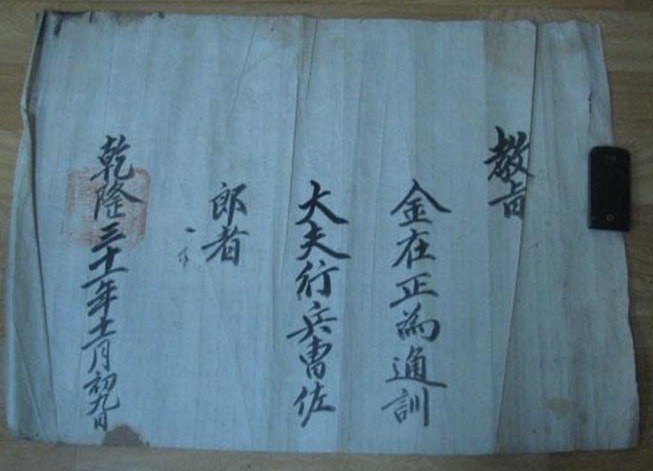 教旨
金在正為通訓
大夫行兵曺佐
郎者
乾隆三十一年十二月初九日